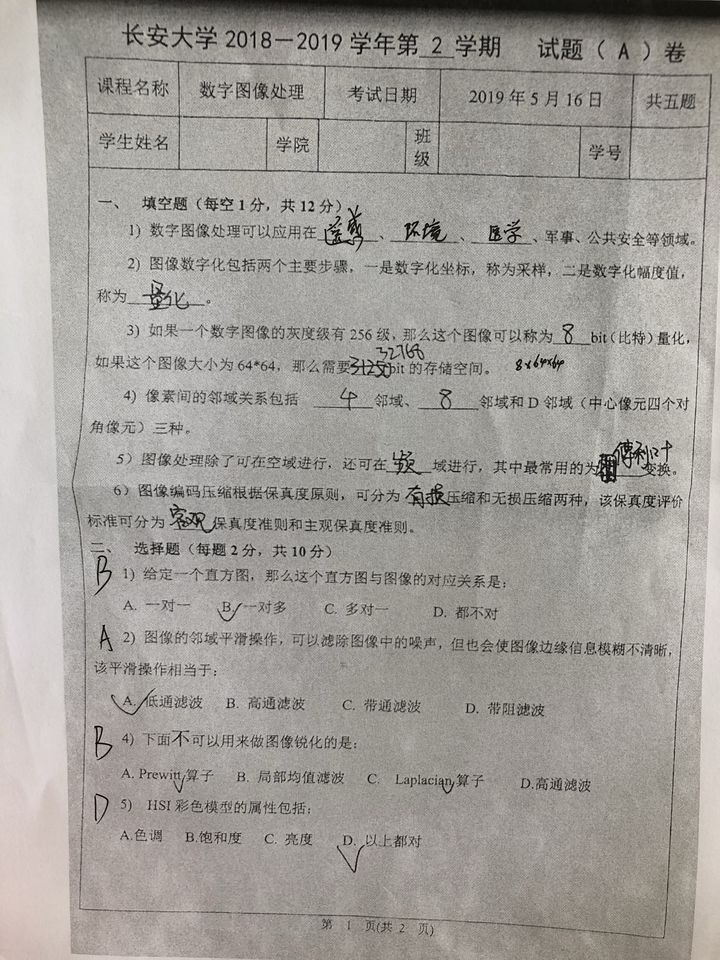 长安大学 2018－2019 学年第 2 学期 试题（ A ）卷
课程名称 数字图像处理 考试日期 2019 年 5 月 16 日 共五题
学生姓名 学院 班级 学号
一、 填空题（每空 1 分，共 12 分）
1) 数字图像处理可以应用在 遥感 、 环境 、 医学 、军事、公共安全等领域。
2) 图像数字化包括两个主要步骤，一是数字化坐标，称为采样，二是数字化幅度值，
称为 量化 。
3) 如果一个数字图像的灰度级有 256 级，那么这个图像可以称为 8 bit（比特）量化，
32768
如果这个图像大小为 64*64，那么需要 31250 bit 的存储空间。 8×64×64
4) 像素间的邻域关系包括 4 邻域、 8 邻域和 D 邻域（中心像元四个对
角像元）三种。
5）图像处理除了可在空域进行，还可在 频 域进行，其中最常用的为 傅利叶 变换。
6）图像编码压缩根据保真度原则，可分为 有损 压缩和无损压缩两种，该保真度评价
标准可分为 客观 保真度准则和主观保真度准则。
二、 选择题（每题 2 分，共 10 分）
B 1) 给定一个直方图，那么这个直方图与图像的对应关系是：
A. 一对一 B. 一对多 C. 多对一 D. 都不对
A 2) 图像的邻域平滑操作，可以滤除图像中的噪声，但也会使图像边缘信息模糊不清晰，
该平滑操作相当于：
A. 低通滤波 B. 高通滤波 C. 带通滤波 D. 带阻滤波
B 4) 下面不可以用来做图像锐化的是：
A. Prewitt 算子 B. 局部均值滤波 C. Laplacian 算子 D.高通滤波
D 5) HSI 彩色模型的属性包括：
A.色调 B.饱和度 C. 亮度 D. 以上都对
第 1 页(共 2 页)